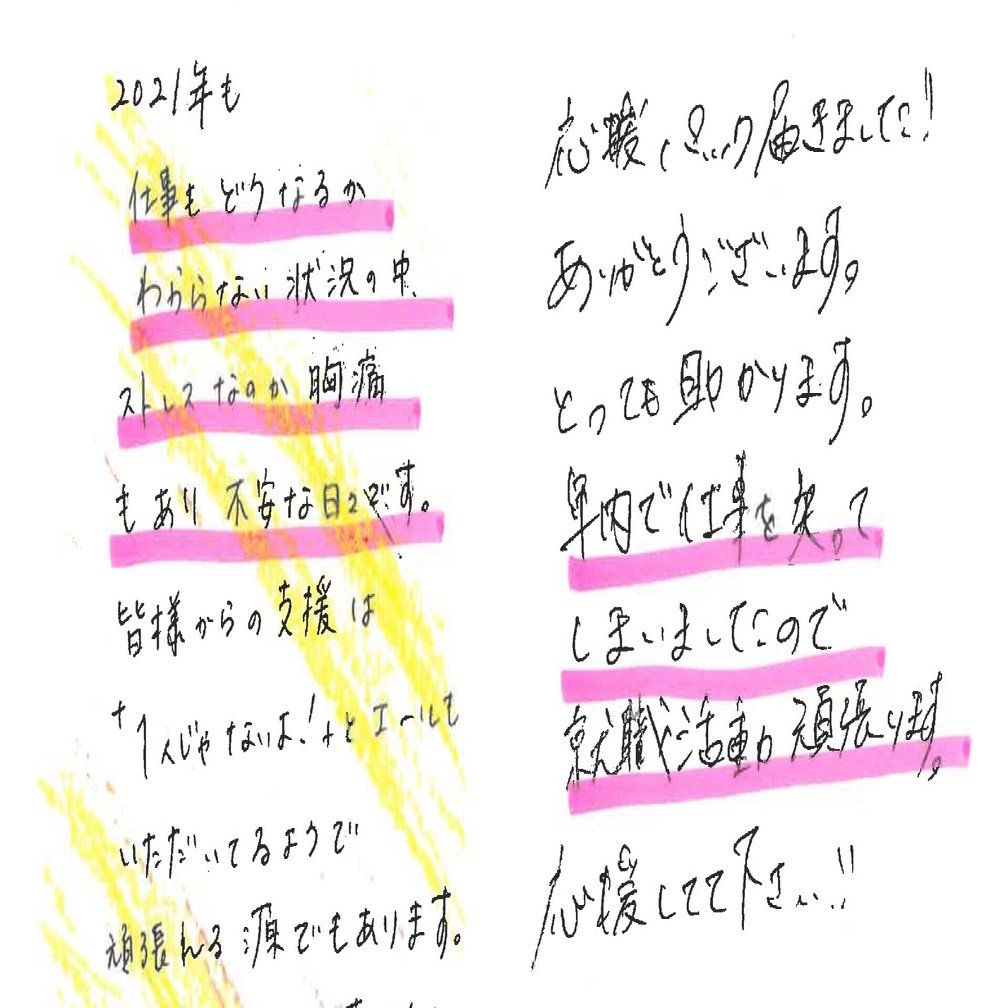 2021年も
仕事もどうなるか
わからない状況の中、
ストレスなのか胸痛
もあり不安な日々です。
皆様からの支援は
"1人じゃないよ!"とエールも
いただいてるようで
頑張れる源でもあります。
応援パック届きました!
ありがとうございます。
とっても助かります。
年内で仕事を失って
しまいましたので
就職活動頑張ります。
応援してて下さい!!